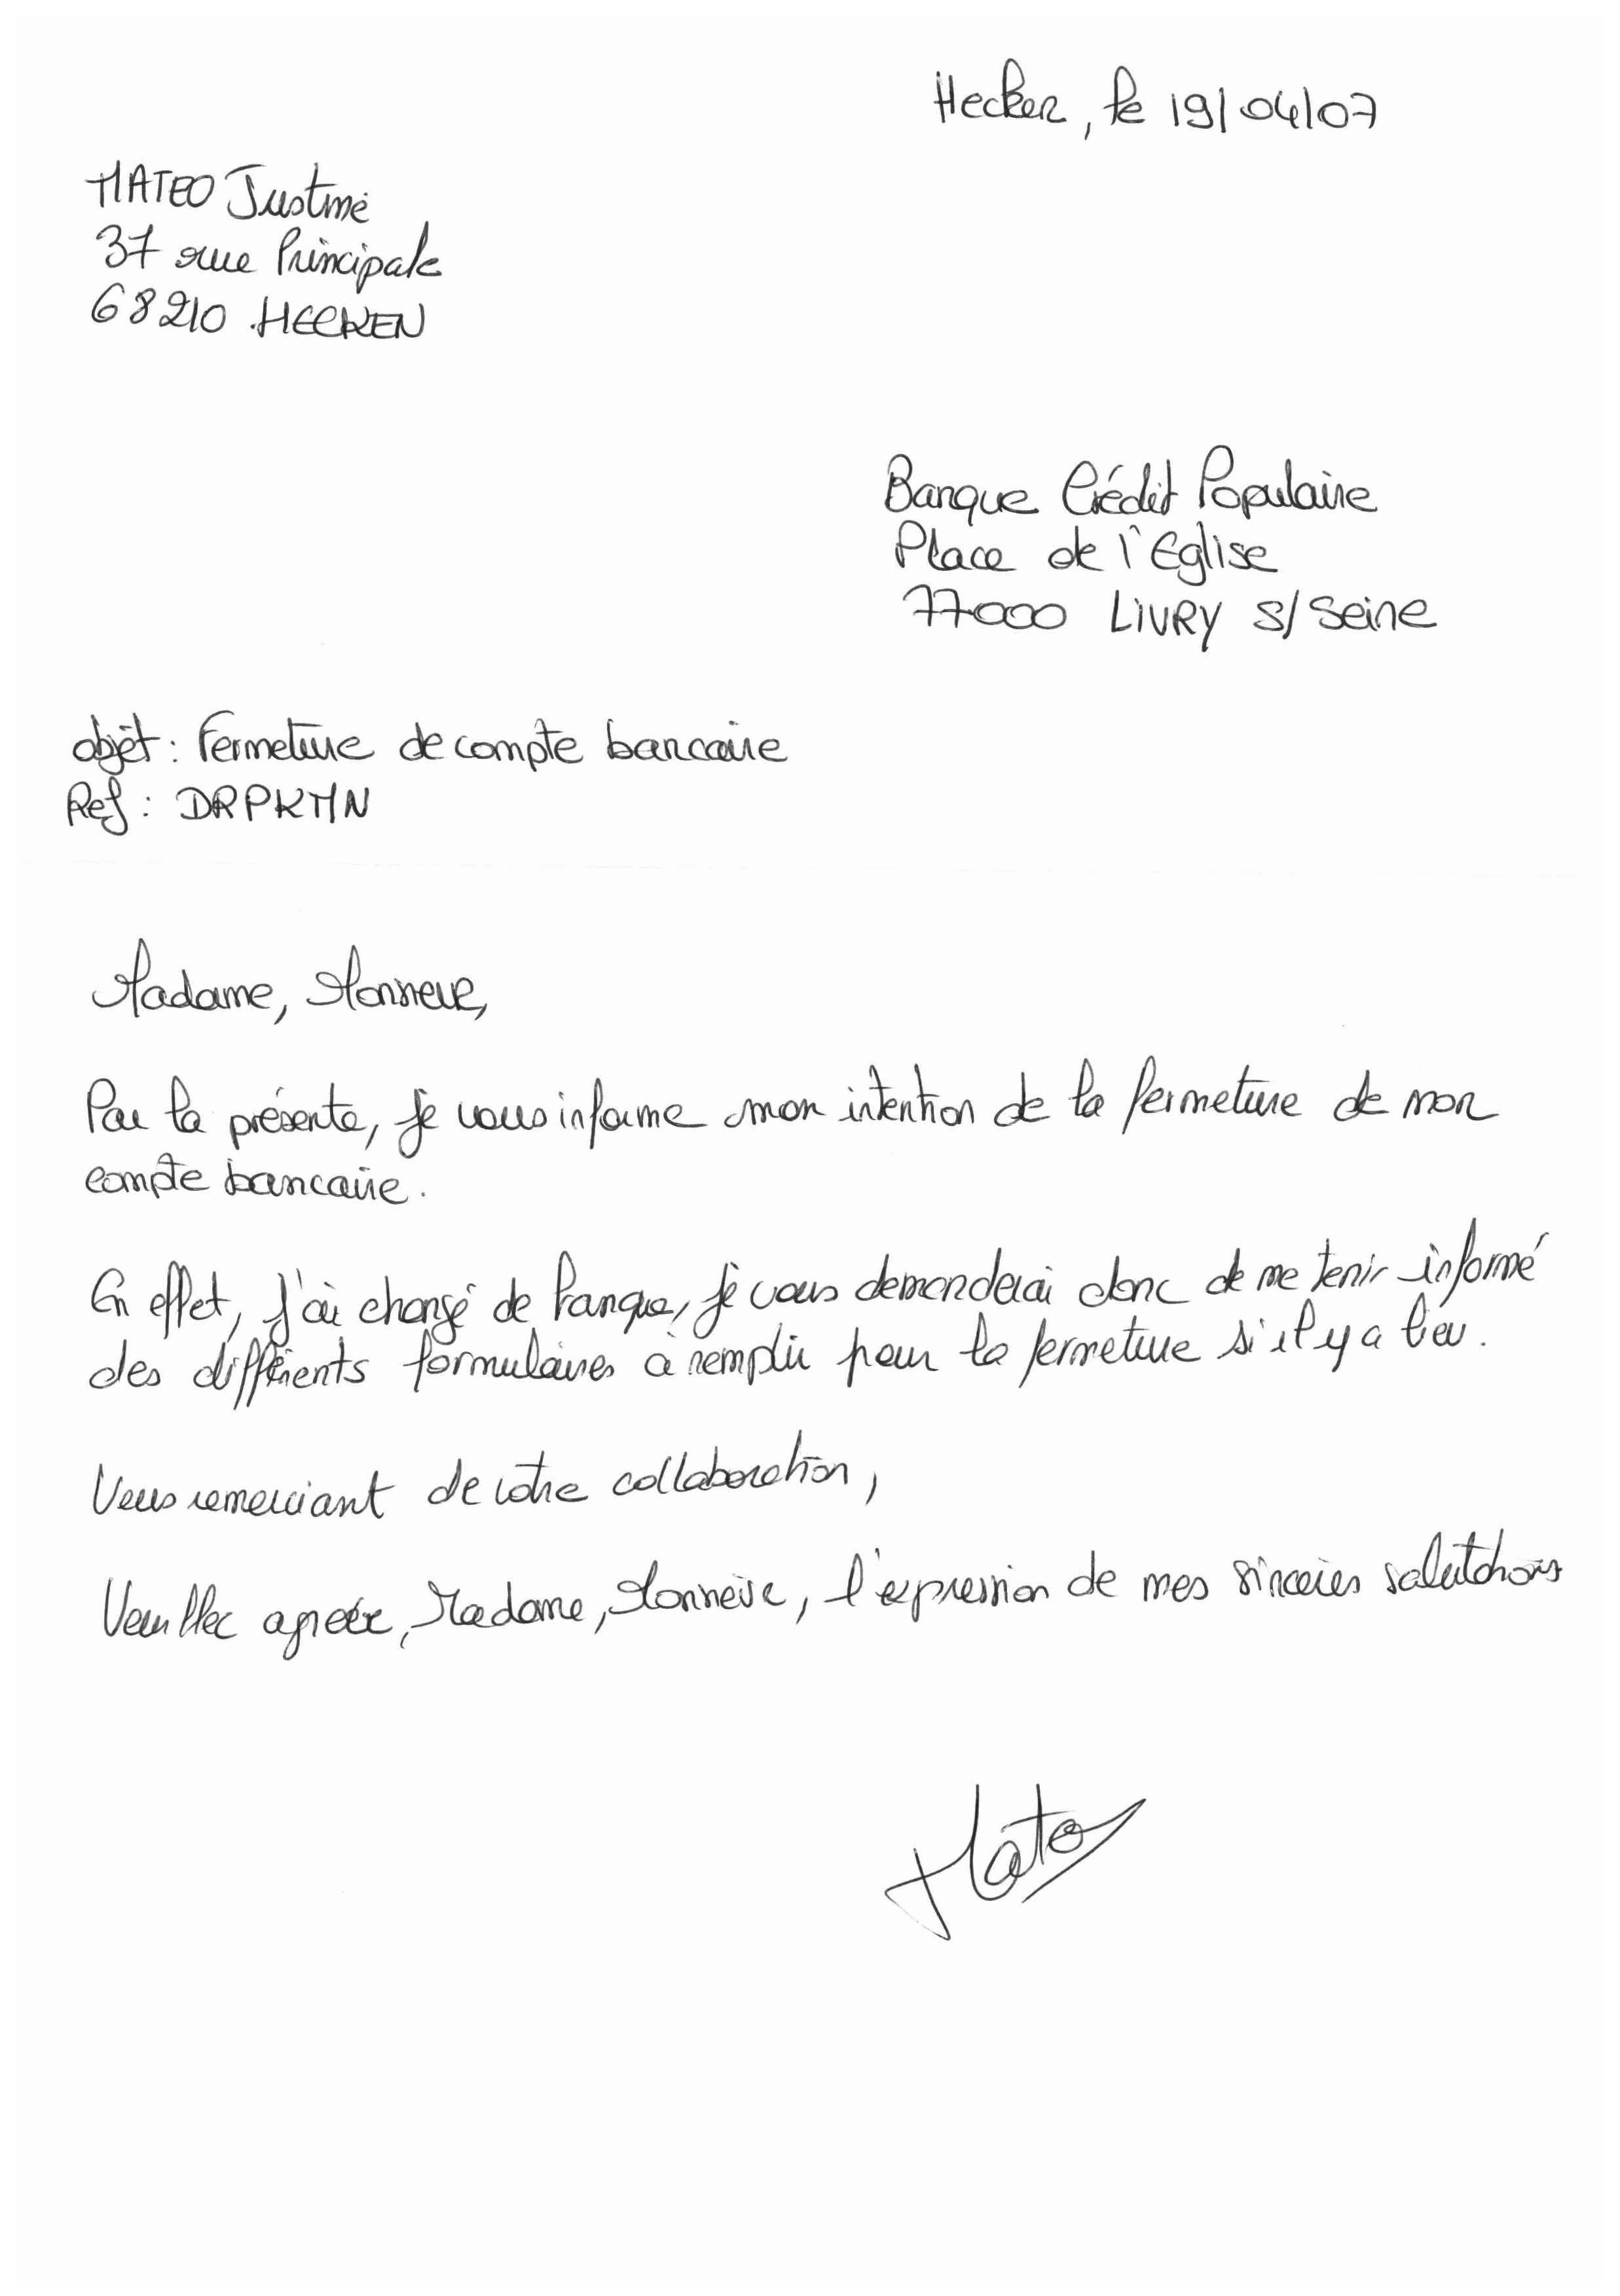 Hecken, le 19/04/07
MATEO Justine
37 rue Principale
68210 HECKEN
Banque Crédit Populaire
Place de l'Eglise
77000 LIVRY s/ Seine
objet : Fermeture de compte bancaire
Ref : DRPKMN
Madame, Monsieur,
Par la présente, je vous informe mon intention de la fermeture de mon
compte bancaire.
En effet, j'ai changé de banque, je vous demanderai donc de me tenir informé
des différents formulaires à remplir pour la fermeture s'il y a lieu.
Vous remerciant de votre collaboration,
Veuillez agréer, Madame, Monsieur, l'expression de mes sincères salutations
Mateo